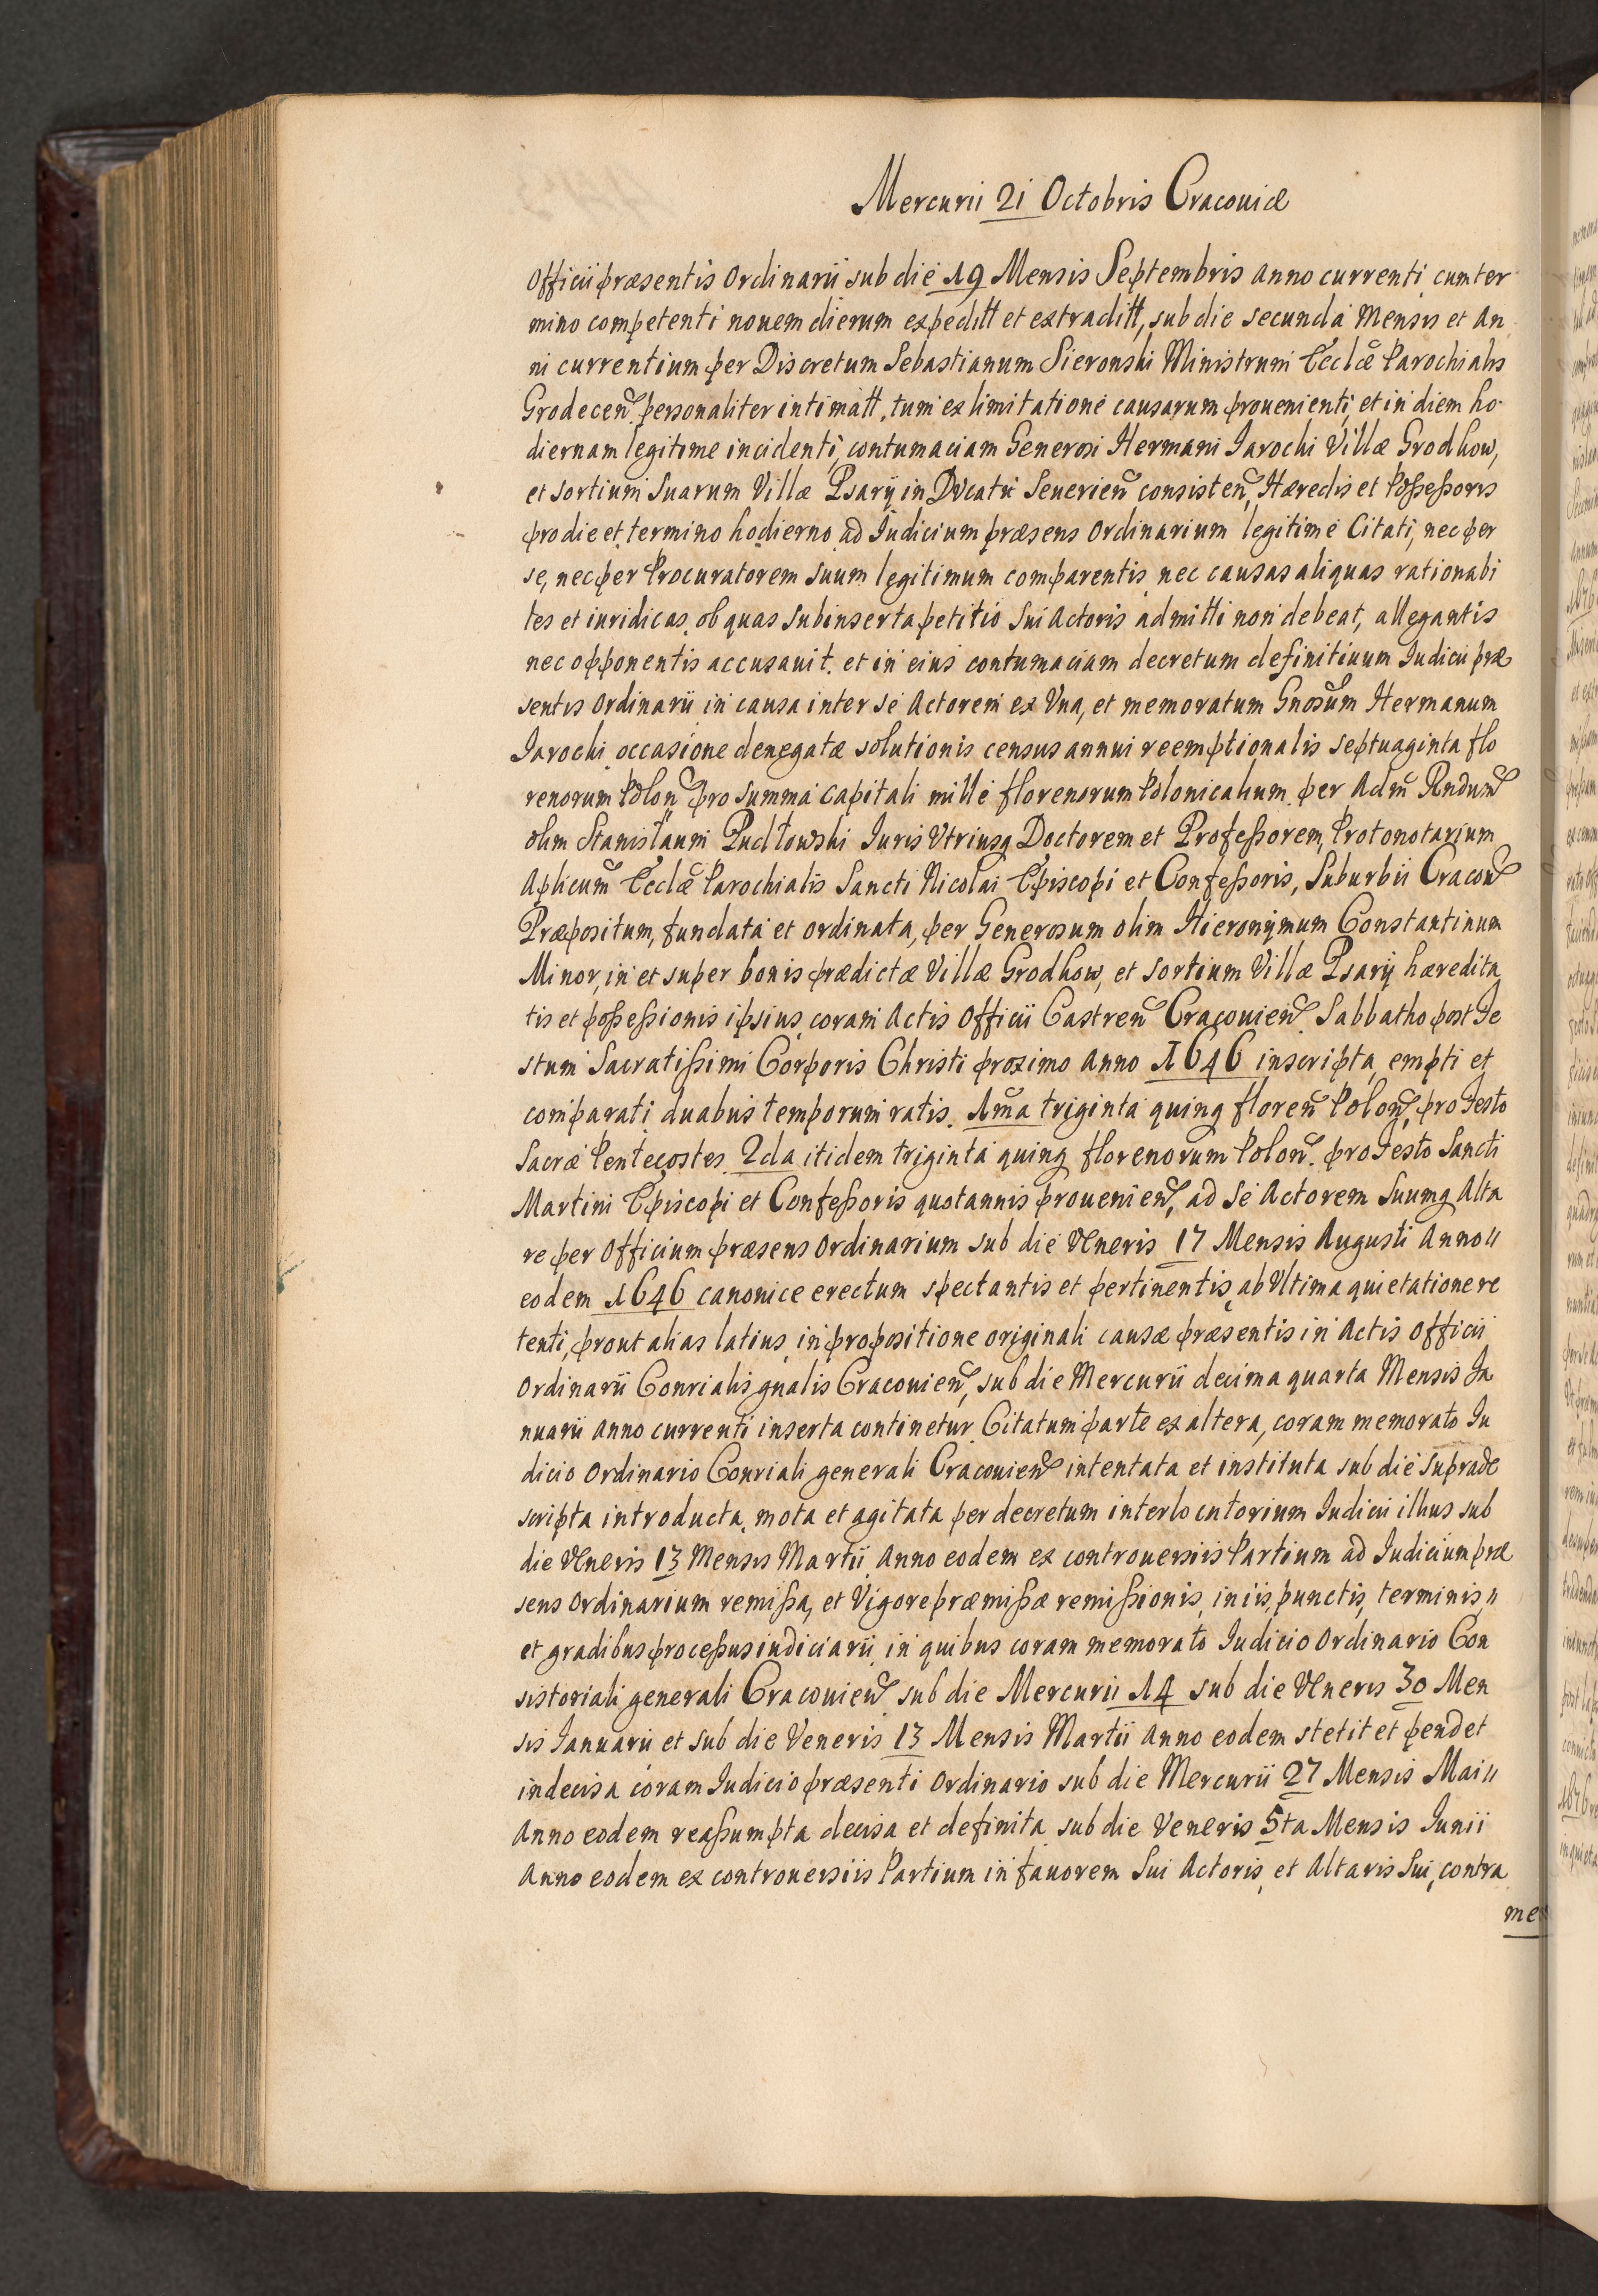 Mercurii 21 Octobris Cracouiæ
Officii præsentis Ordinarii sub die 19 Mensis Septembris anno currenti cum ter
mino competenti nouem dierum expeditt et extraditt, sub die secunda Mensis et An
ni currentium per Discretum Sebastianum Sieronski Ministrum Ecclæ Parochialis
Grodecen. personaliter intimatt, tum ex limitatione causarum prouenienti, et in diem ho
diernam legitime incidenti, contumaciam Generosi Hermani Jarochi Villæ Grodkow,
et sortium suarum Villæ Psary in Ducatu Seuerien consisten, Hæredis et Poßeßoris
pro die et termino hodierno ad Iudicium præsens Ordinarium legitime Citati, nec per
se, nec per Procuratorem suum legitimum comparentis, nec causas aliquas rationabi
les et iuridicas, ob quas subinserta petitio sui Actoris admitti non debeat, allegantis
nec opponentis accusauit. et in eius contumaciam decretum definitiuum Iudicii præ
sentis Ordinarii in causa inter se Actorem ex Vna, et memoratum Gnosum Hermanum
Jarochi occasione denegatæ solutionis census annui reemptionalis septuaginta flo
renorum Polon pro summa capitali mille florenorum Polonicalium per Adm Rndum
olim Stanislaum Pudłowski Iuris Vtriusq Doctorem et Profeßorem, Protonotarium
Aplicum Ecclæ Parochialis Sancti Nicolai Episcopi et Confeßoris, Suburbii Cracon
Præpositum, fundata et ordinata, per Generosum olim Hieronymum Constantinum
Minor, in et super bonis prædictæ Villæ Grodkow, et sortium Villæ Psary hæredita
tis et poßeßionis ipsius coram Actis Officii Castren Cracouien. Sabbatho post Fe
stum Sacratißimi Corporis Christi proximo Anno 1646 inscripta, empti et
comparati duabus temporum ratis. 1ma triginta quinq floren Polon, pro Festo
Sacræ Pentecostes, 2da itidem triginta quinq florenorum Polon. pro Festo Sancti
Martini Episcopi et Confeßoris quotannis prouenien, ad se Actorem Suumq Alta
re per Officium præsens Ordinarium sub die Veneris 17 Mensis Augusti Anno
eodem 1646 canonice erectum spectantis et pertinentis, ab Vltima quietatione re
tenti, prout alias latius in propositione originali causæ præsentis in Actis Officii
Ordinarii Conrialis gnalis Cracouien, sub die Mercurii decima quarta Mensis Ja
nuarii anno currenti inserta continetur, Citatum parte ex altera, coram memorato Iu
dicio Ordinario Conriali generali Cracouien intentata et instituta sub die suprade
scripta introducta, mota et agitata per decretum interlocutorium Iudicii illius sub
die Veneris 13 Mensis Martii Anno eodem ex controuersiis Partium ad Iudicium præ
sens Ordinarium remißa, et Vigore præmißæ remißionis, in iis punctis, terminis,
et gradibus proceßus iudiciarii in quibus coram memorato Iudicio Ordinario Con
sistoriali generali Cracouien sub die Mercurii 14 sub die Veneris 30 Men
sis Ianuarii et sub die Veneris 13 Mensis Martii Anno eodem stetit et pendet
indecisa coram Iudicio præsenti Ordinario sub die Mercurii 27 Mensis Maii
Anno eodem reaßumpta decisa et definita sub die Veneris 5ta Mensis Iunii
Anno eodem ex controuersiis Partium in fauorem sui Actoris, et Altaris sui, contra